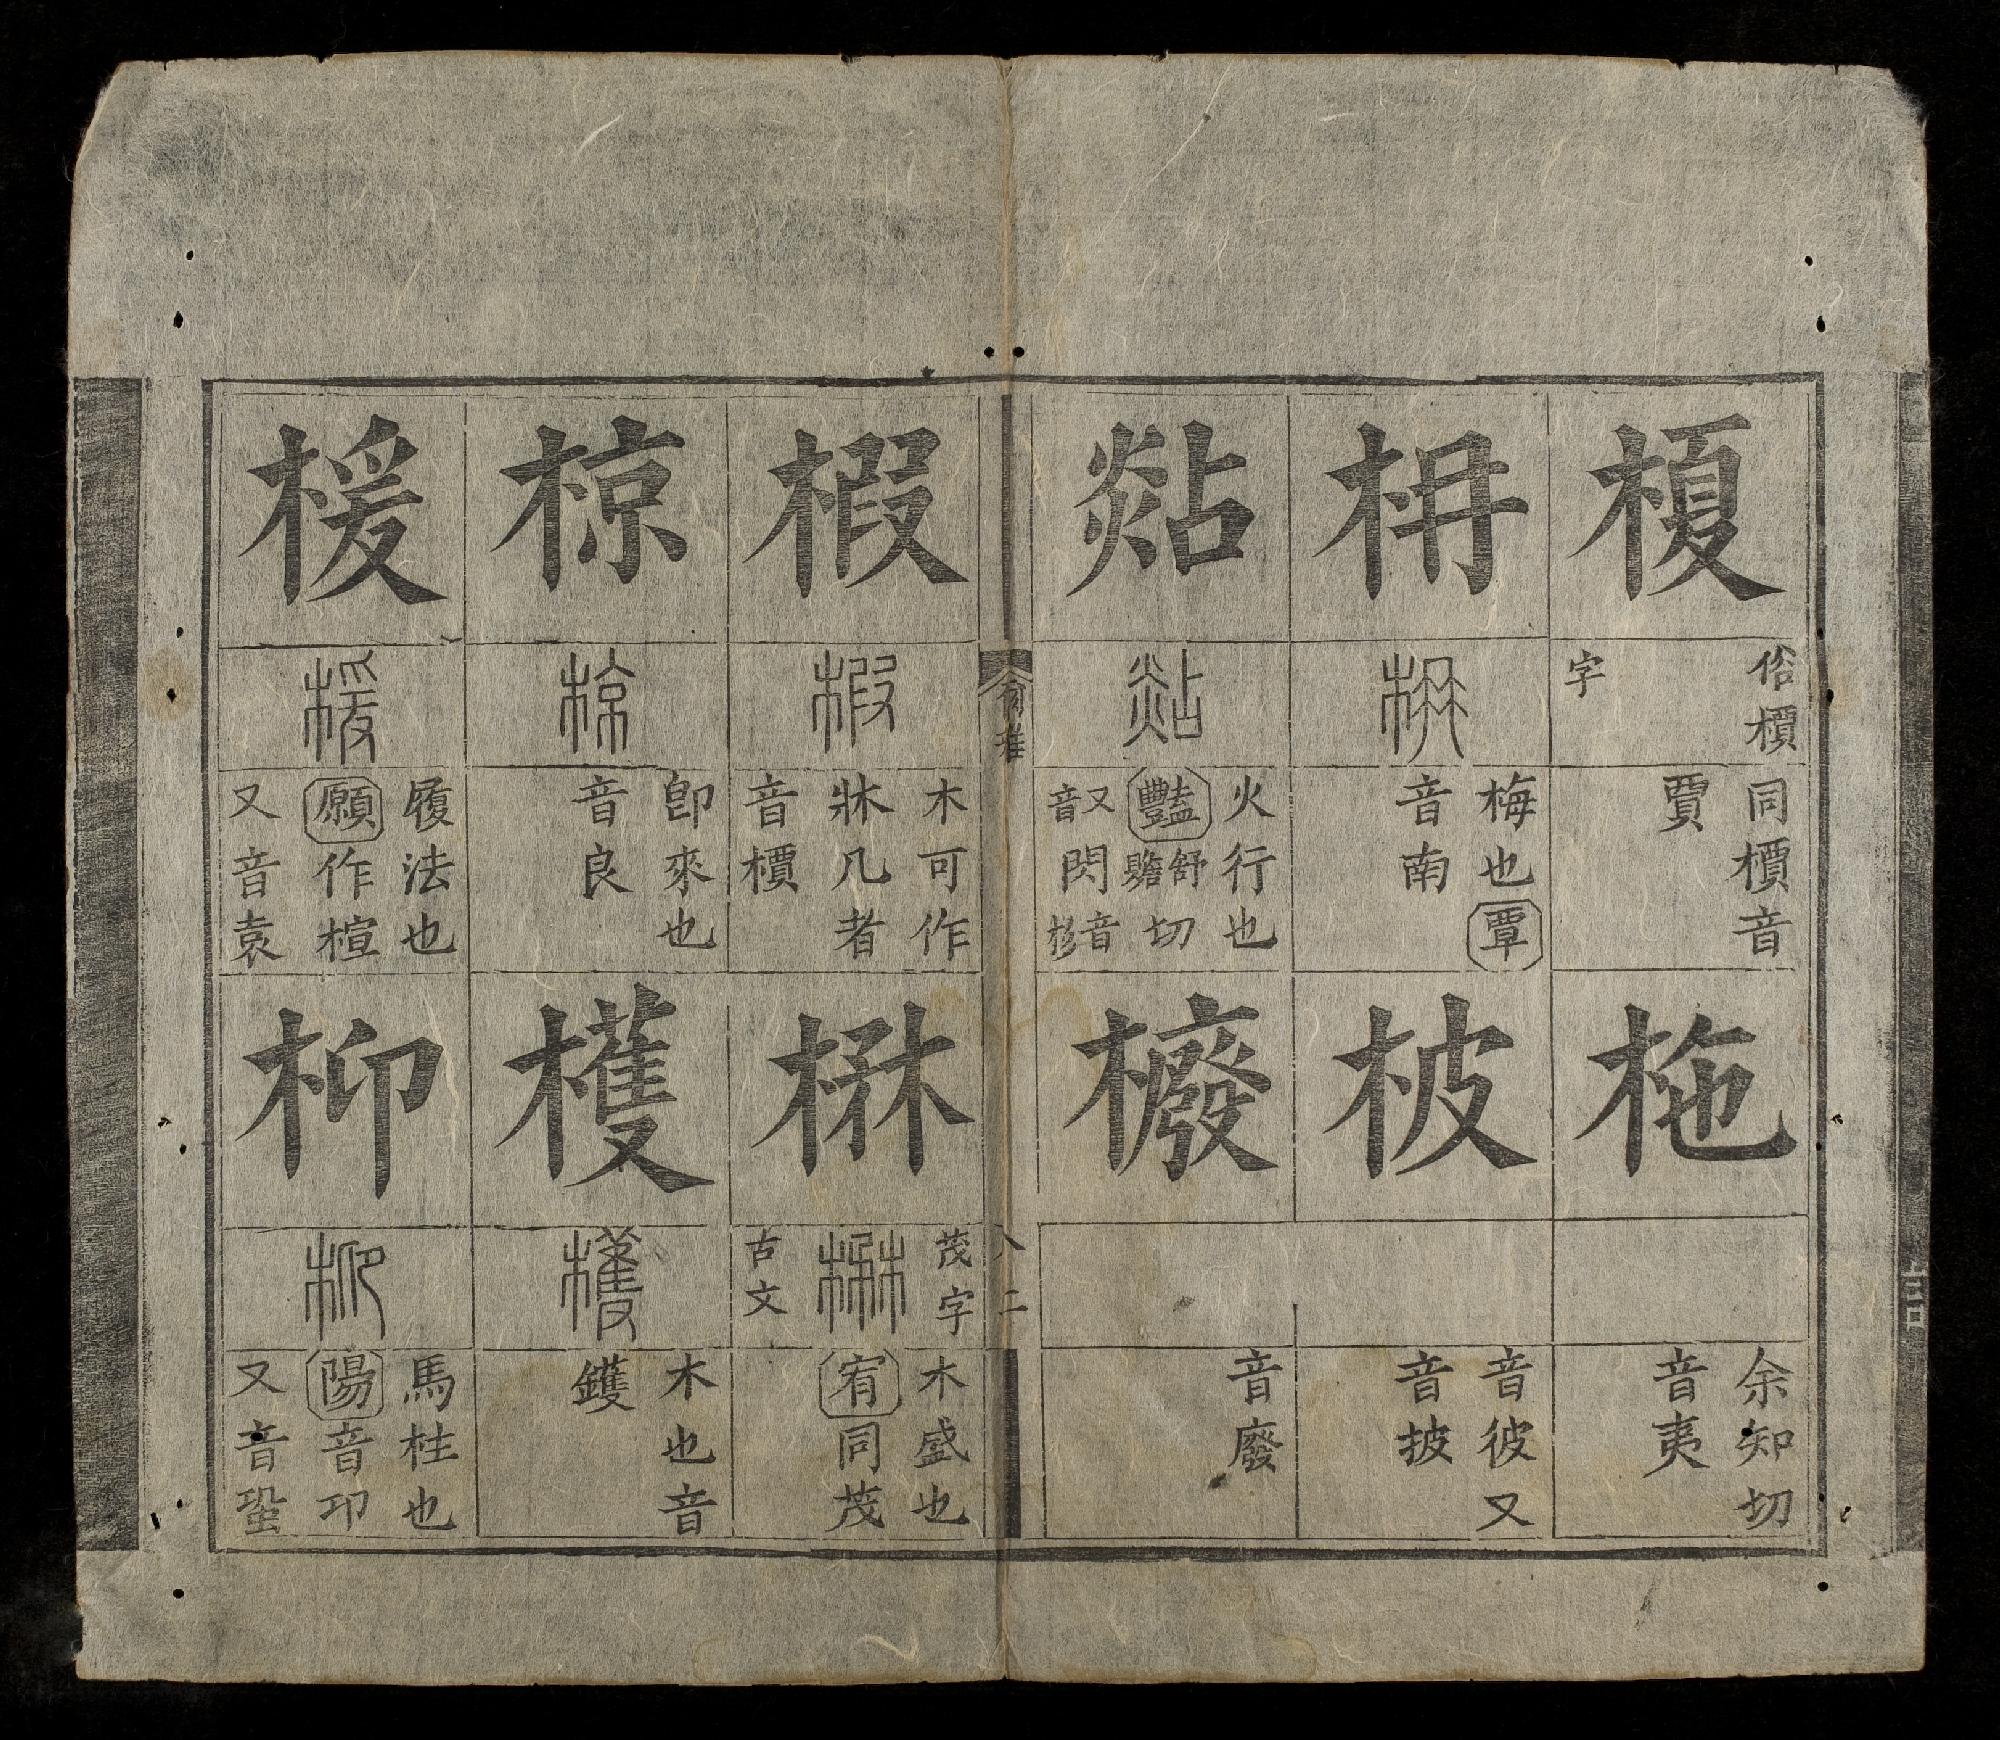 榎
俗檟
字
同檟音
賈
枏
枏
梅也覃
音南
煔
煔
火行也
豔舒贍切
又音閃音杉
柂
余知切
音夷
柀
音彼又
音披
櫠
音廢
八二
椵
椵
木可作
牀几者
音檟
椋
椋
即來也
音良
楥
楥
履法也
願作楦
又音袁
楙
茂字
楙
古文
木盛也
宥同茂
檴
檴
木也音
鑊
枊
枊
馬柱也
陽音卬
又音